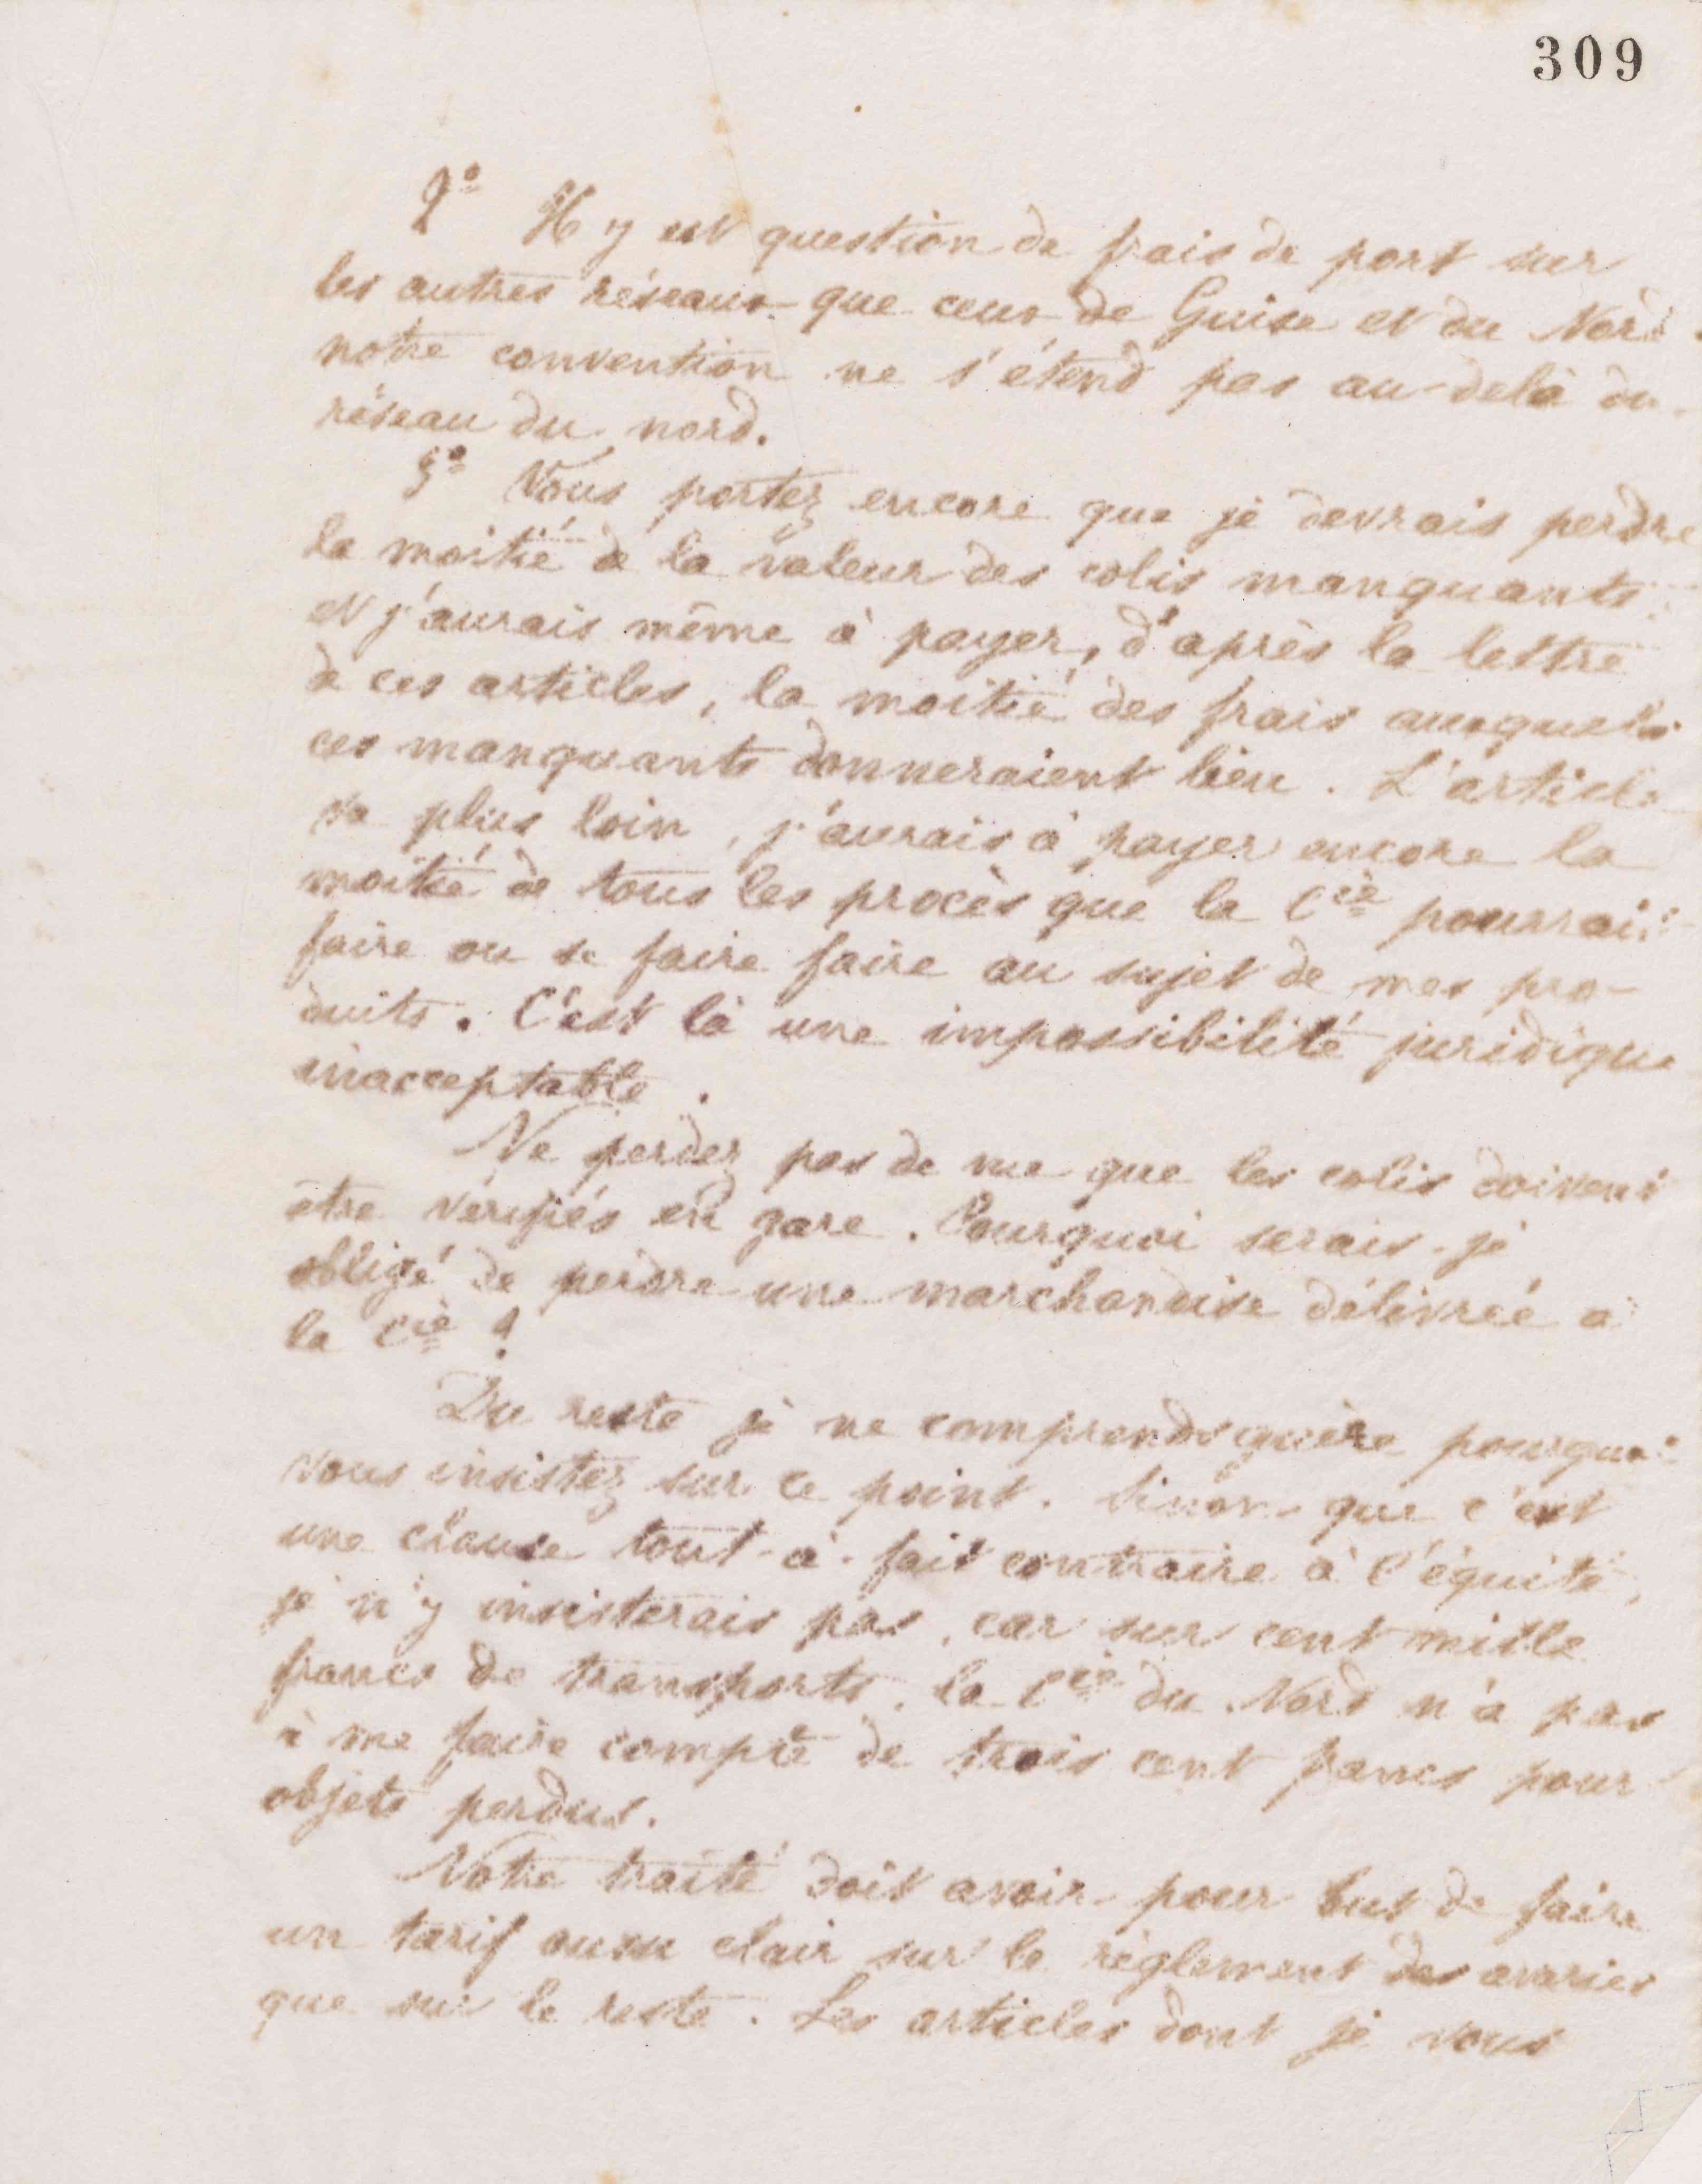 309
2° Il y est question de frais de port sur
les autres réseaux que ceux de Guise et du Nord.
notre convention ne s'étend pas au-delà du
réseau du nord.
3° Vous portez encore que je devrais perdre
la moitié de la valeur des colis manquants
et j'aurais même à payer, d'après la lettre
de ces articles, la moitié des frais auxquels
ces manquants donneraient lieu. L'article
va plus loin, j'aurais à payer encore la
moitié de tous les procès que la Cie pourrait
faire ou se faire faire au sujet de mes pro-
duits. C'est là une impossibilité juridique
inacceptable.
Ne perdez pas de vue que les colis doivent
être vérifiés en gare. Pourquoi serais-je
obligé de perdre une marchandise délivrée à
la Cie ?
Du reste je ne comprends guère pourquoi
vous insistez sur ce point. Sinon que c'est
une clause tout-à-fait contraire à l'équité,
je n'y insisterais pas, car sur cent mille
francs de transports, la Cie du Nord n'a pas
à me faire compte de trois cent francs pour
objets perdus.
Notre traité doit avoir pour but de faire
un tarif aussi clair sur le règlement des avaries
que sur le reste. Les articles dont je vous